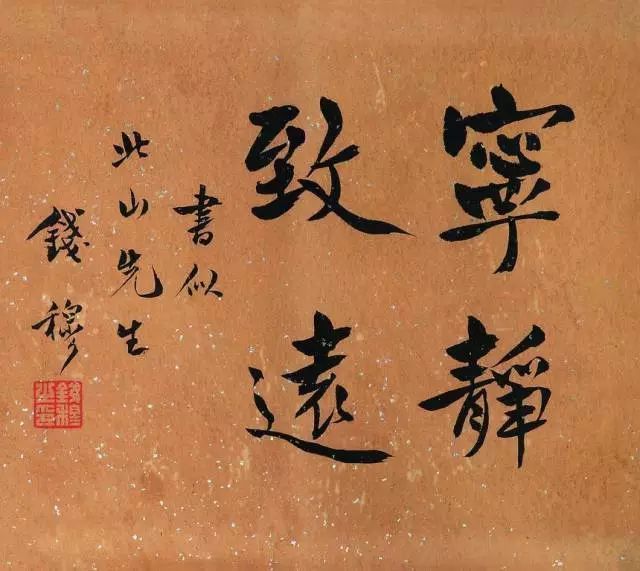 寧靜
致遠
書似
此山先生
錢穆
錢穆之璽